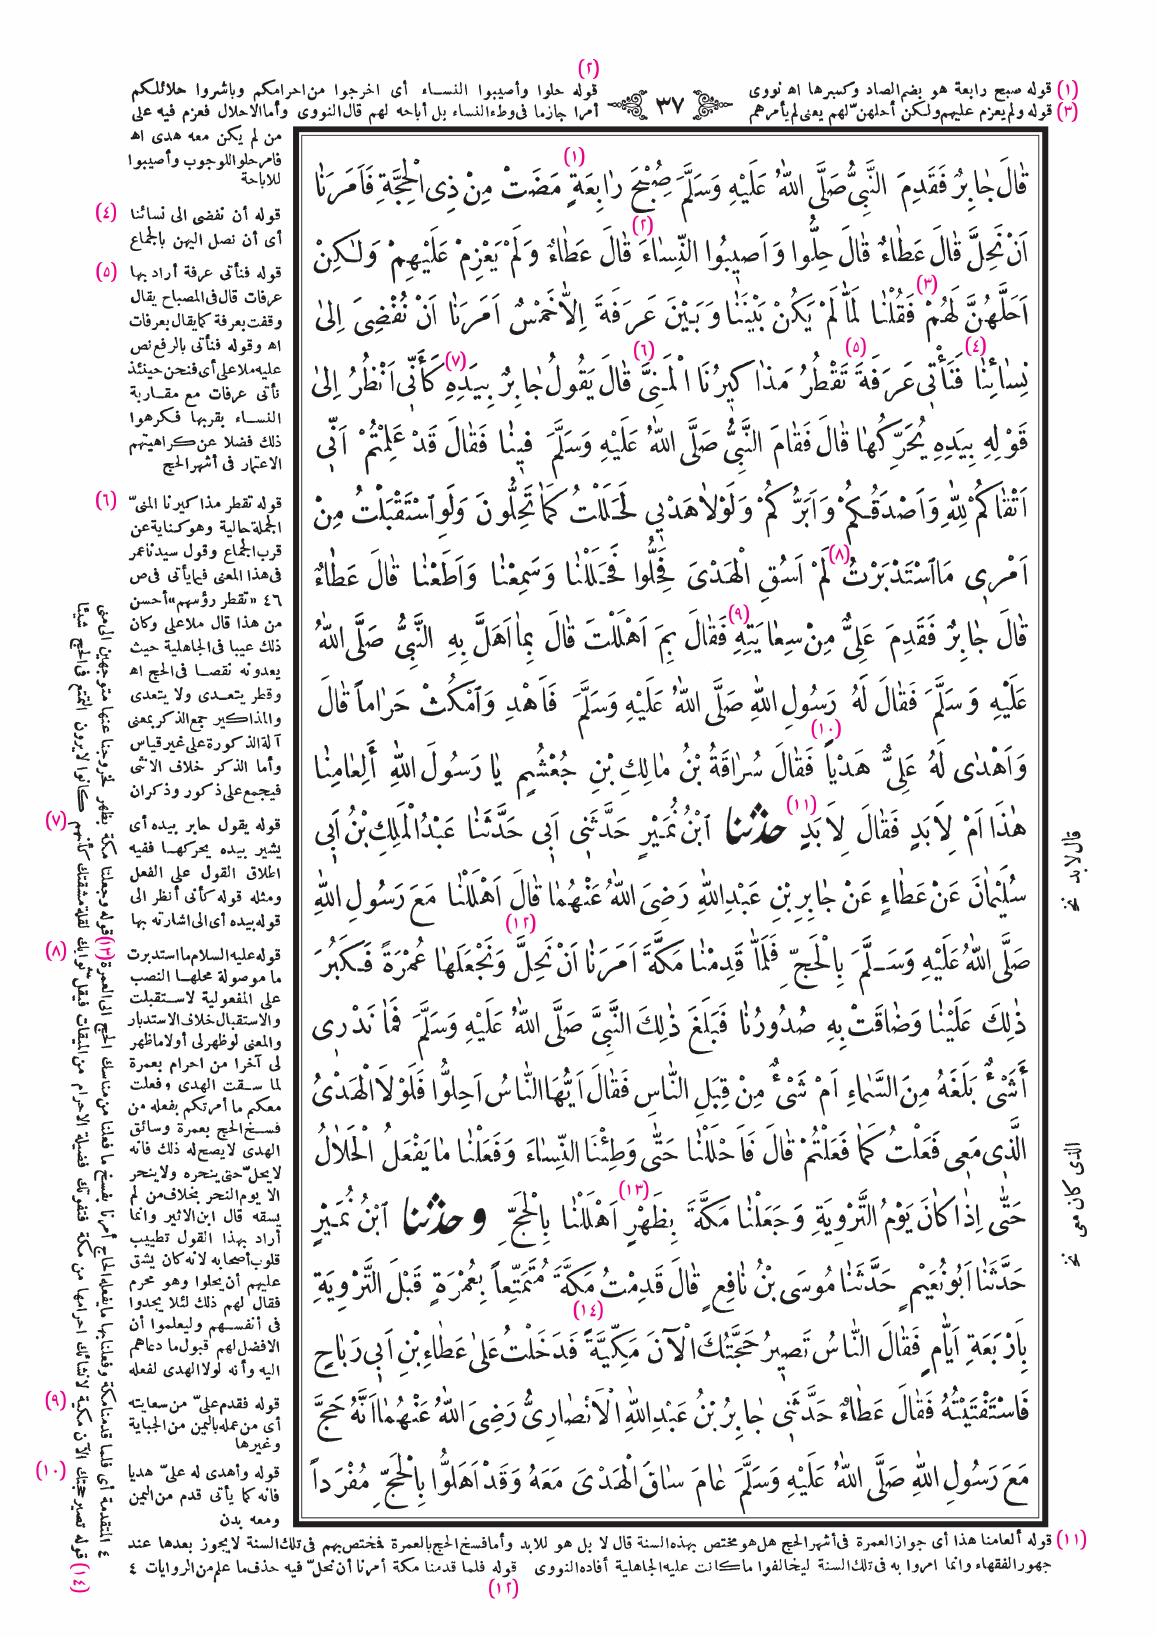 (٢)
(١) قوله صبح رابعة هو بضم الصاد وكسرها اه نووى
(٣) قوله ولم يعزم عليهم ولكن أحلهنّ لهم يعنى لم يأمرهم
٣٧
قوله حلوا وأصيبوا النساء أى اخرجوا من احرامكم وباشروا حلائلكم
أمرا جازما فى وطء النساء بل أباحه لهم قال النووى وأما الاحلال فعزم فيه على
من لم يكن معه هدى اه
فامر حلوا للوجوب وأصيبوا
للاباحة
(١)
قَالَ جَابِرٌ فَقَدِمَ النَّبِىُّ صَلَّى اللّٰهُ عَلَيْهِ وَسَلَّمَ صُبْحَ رَابِعَةٍ مَضَتْ مِنْ ذِى الْحِجَّةِ فَاَمَرَنَا
(٢)
اَنْ نَحِلَّ قَالَ عَطَاءٌ قَالَ حِلُّوا وَاَصِيبُوا النِّسَاءَ قَالَ عَطَاءٌ وَلَمْ يَعْزِمْ عَلَيْهِمْ وَلٰكِنْ
(٣)
اَحَلَّهُنَّ لَهُمْ فَقُلْنَا لَمَّا لَمْ يَكُنْ بَيْنَنَا وَبَيْنَ عَرَفَةَ اِلَّا خَمْسٌ اَمَرَنَا اَنْ نُفْضِىَ اِلٰى
(٤) (٥) (٦) (٧)
نِسَائِنَا فَنَأْتِىَ عَرَفَةَ تَقْطُرُ مَذَاكِيرُنَا الْمَنِىَّ قَالَ يَقُولُ جَابِرٌ بِيَدِهِ كَأَنِّى اَنْظُرُ اِلٰى
قَوْلِهِ بِيَدِهِ يُحَرِّكُهَا قَالَ فَقَامَ النَّبِىُّ صَلَّى اللّٰهُ عَلَيْهِ وَسَلَّمَ فِينَا فَقَالَ قَدْ عَلِمْتُمْ اَنِّى
اَتْقَاكُمْ لِلّٰهِ وَاَصْدَقُكُمْ وَاَبَرُّكُمْ وَلَوْلَا هَدْيِى لَحَلَلْتُ كَمَا تَحِلُّونَ وَلَوِ اسْتَقْبَلْتُ مِنْ
(٨)
اَمْرِى مَا اسْتَدْبَرْتُ لَمْ اَسُقِ الْهَدْىَ فَحِلُّوا فَحَلَلْنَا وَسَمِعْنَا وَاَطَعْنَا قَالَ عَطَاءٌ
(٩)
قَالَ جَابِرٌ فَقَدِمَ عَلِىٌّ مِنْ سِعَايَتِهِ فَقَالَ بِمَ اَهْلَلْتَ قَالَ بِمَا اَهَلَّ بِهِ النَّبِىُّ صَلَّى اللّٰهُ
عَلَيْهِ وَسَلَّمَ فَقَالَ لَهُ رَسُولِ اللّٰهِ صَلَّى اللّٰهُ عَلَيْهِ وَسَلَّمَ فَاَهْدِ وَامْكُثْ حَرَاماً قَالَ
(١٠)
وَاَهْدٰى لَهُ عَلِىٌّ هَدْياً فَقَالَ سُرَاقَةُ بْنُ مَالِكِ بْنِ جُعْشُمٍ يَا رَسُولَ اللّٰهِ أَلِعَامِنَا
(١١)
هٰذَا اَمْ لِاَبَدٍ فَقَالَ لِاَبَدٍ حدثنا ابْنُ نُمَيْرٍ حَدَّثَنِى اَبِى حَدَّثَنَا عَبْدُ الْمَلِكِ بْنُ اَبِى
سُلَيْمَانَ عَنْ عَطَاءٍ عَنْ جَابِرِ بْنِ عَبْدِ اللّٰهِ رَضِىَ اللّٰهُ عَنْهُمَا قَالَ اَهْلَلْنَا مَعَ رَسُولِ اللّٰهِ
(١٢)
صَلَّى اللّٰهُ عَلَيْهِ وَسَلَّمَ بِالْحَجِّ فَلَمَّا قَدِمْنَا مَكَّةَ اَمَرَنَا اَنْ نَحِلَّ وَنَجْعَلَهَا عُمْرَةً فَكَبُرَ
ذٰلِكَ عَلَيْنَا وَضَاقَتْ بِهِ صُدُورُنَا فَبَلَغَ ذٰلِكَ النَّبِىَّ صَلَّى اللّٰهُ عَلَيْهِ وَسَلَّمَ فَمَا نَدْرِى
أَشَىْءٌ بَلَغَهُ مِنَ السَّمَاءِ اَمْ شَىْءٌ مِنْ قِبَلِ النَّاسِ فَقَالَ اَيُّهَا النَّاسُ اَحِلُّوا فَلَوْلَا الْهَدْىُ
الَّذِى مَعِى فَعَلْتُ كَمَا فَعَلْتُمْ قَالَ فَاَحْلَلْنَا حَتّٰى وَطِئْنَا النِّسَاءَ وَفَعَلْنَا مَا يَفْعَلُ الْحَلَالُ
(١٣)
حَتّٰى اِذَا كَانَ يَوْمُ التَّرْوِيَةِ وَجَعَلْنَا مَكَّةَ بِظَهْرٍ اَهْلَلْنَا بِالْحَجِّ وحدثنا ابْنُ نُمَيْرٍ
حَدَّثَنَا اَبُو نُعَيْمٍ حَدَّثَنَا مُوسَى بْنُ نَافِعٍ قَالَ قَدِمْتُ مَكَّةَ مُتَمَتِّعاً بِعُمْرَةٍ قَبْلَ التَّرْوِيَةِ
(١٤)
بِاَرْبَعَةِ اَيَّامٍ فَقَالَ النَّاسُ تَصِيرُ حَجَّتُكَ الْآنَ مَكِّيَّةً فَدَخَلْتُ عَلٰى عَطَاءِ بْنِ اَبِى رَبَاحٍ
فَاسْتَفْتَيْتُهُ فَقَالَ عَطَاءٌ حَدَّثَنِى جَابِرُ بْنُ عَبْدِ اللّٰهِ الْاَنْصَارِىُّ رَضِىَ اللّٰهُ عَنْهُمَا اَنَّهُ حَجَّ
مَعَ رَسُولِ اللّٰهِ صَلَّى اللّٰهُ عَلَيْهِ وَسَلَّمَ عَامَ سَاقَ الْهَدْىَ مَعَهُ وَقَدْ اَهَلُّوا بِالْحَجِّ مُفْرَداً
قال لا بد نخ
الذى كان معى نخ
(٤) قوله أن نفضى الى نسائنا
أى أن نصل اليهن بالجماع
(٥) قوله فنأتى عرفة أراد بها
عرفات قال فى المصباح يقال
وقفت بعرفة كما يقال بعرفات
اه وقوله فنأتى بالرفع نص
عليه ملا على أى فنحن حينئذ
نأتى عرفات مع مقاربة
النساء بقربها فكرهوا
ذلك فضلا عن كراهيتهم
الاعتمار فى أشهر الحج
(٦) قوله تقطر مذاكيرنا المنىّ
الجملة حالية وهو كناية عن
قرب الجماع وقول سيدنا عمر
فى هذا المعنى فيما يأتى فى ص
٤٦ «تقطر رؤسهم» أحسن
من هذا قال ملا على وكان
ذلك عيبا فى الجاهلية حيث
يعدونه نقصا فى الحج اه
وقطر يتعدى ولا يتعدى
والمذاكير جمع الذكر بمعنى
آلة الذكورة على غير قياس
وأما الذكر خلاف الانثى
فيجمع على ذكور وذكران
(٧) قوله يقول جابر بيده أى
يشير بيده يحركهما ففيه
اطلاق القول على الفعل
ومثله قوله كأنى أنظر الى
قوله بيده أى الى اشارته بها
(٨) قوله عليه السلام ما استدبرت
ما موصولة محلها النصب
على المفعولية لاستقبلت
والاستقبال خلاف الاستدبار
والمعنى لو ظهر لى أولا ما ظهر
لى آخرا من احرام بعمرة
لما سقت الهدى وفعلت
معكم ما أمرتكم بفعله من
فسخ الحج بعمرة وسائق
الهدى لا يصح له ذلك فانه
لا يحلّ حتى ينحره ولا ينحر
الا يوم النحر بخلاف من لم
يسقه قال ابن الاثير وانما
أراد بهذا القول تطييب
قلوب أصحابه لانه كان يشق
عليهم أن يحلوا وهو محرم
فقال لهم ذلك لئلا يجدوا
فى أنفسهم وليعلموا أن
الافضل لهم قبول ما دعاهم
اليه وأنه لولا الهدى لفعله
(٩) قوله فقدم علىّ من سعايته
أى من عمله باليمن من الجباية
وغيرها
(١٠) قوله وأهدى له علىّ هديا
فانه كما يأتى قدم من اليمن
ومعه بدن
(١١) قوله ألعامنا هذا أى جواز العمرة فى أشهر الحج هل هو مختص بهذه السنة قال لا بل هو للابد وأما فسخ الحج بالعمرة فمختص بهم فى تلك السنة لا يجوز بعدها عند
جمهور الفقهاء وانما امروا به فى تلك السنة ليخالفوا ما كانت عليه الجاهلية أفاده النووى قوله فلما قدمنا مكة أمرنا أن نحلّ فيه حذف ما علم من الروايات ٤
(١٢)
٤ المتقدمة أى فلما قدمنا مكة وفعلنا بها ما يفعله الحاج أمرنا بفسخ ما فعلنا من مناسك الحج الى العمرة (١٣) قوله وجعلنا مكة بظهر لخروجنا عنها متوجهين الى منى
(١٤) قوله تصير حجتك الآن مكية لانشائك احرامها من مكة فتفوتك فضيلة الاحرام من الميقات فيقل ثوابك لقلة مشقتك كأنهم كانوا لا يرون التمتع فى الحج شيئا